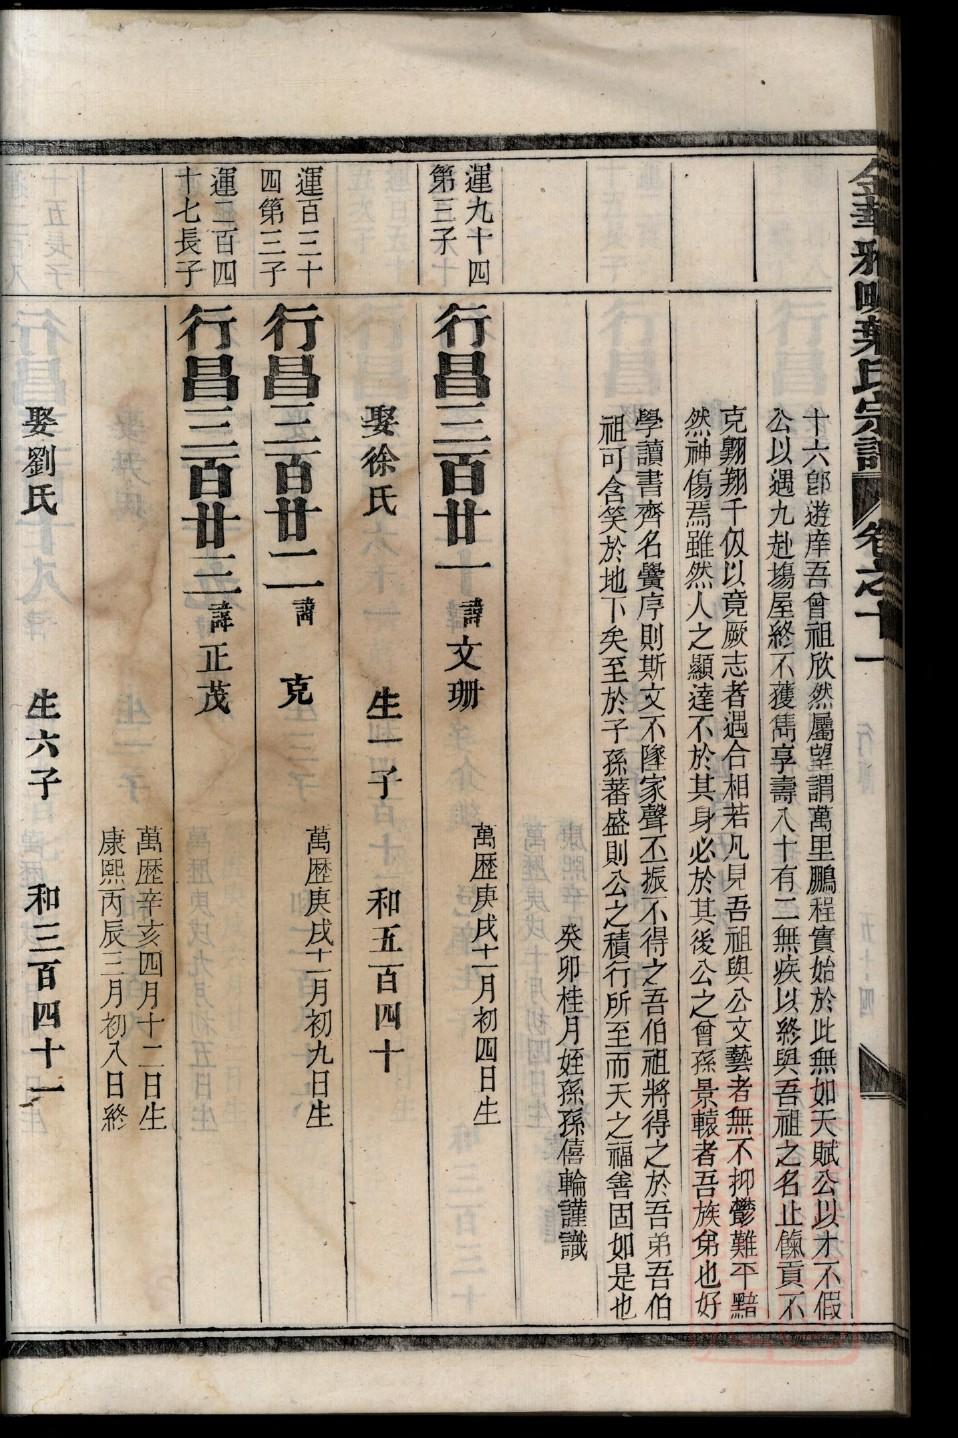 金華雅畈葉氏宗譜 卷之十一
十六郎遊庠吾曾祖欣然屬望謂萬里鵬程實始於此無如天賦公以才不假
公以遇九赴塲屋終不獲雋享壽八十有二無疾以終與吾祖之名止餼貢不
克翺翔千仭以竟厥志者遇合相若凡見吾祖與公文藝者無不抑鬱難平黯
然神傷焉雖然人之顯達不於其身必於其後公之曾孫景轅者吾族弟也好
學讀書齊名黌序則斯文不墜家聲丕振不得之吾伯祖將得之於吾弟吾伯
祖可含笑於地下矣至於子孫蕃盛則公之積行所至而天之福善固如是也
癸卯桂月姪孫孫僖輪謹識
運九十四
第三子
行昌三百廿一 諱文珊
萬歷庚戌十一月初四日生
娶徐氏 生一子 和五百四十
運百三十
四第三子
行昌三百廿二 諱 克
萬歷庚戌十一月初九日生
運二百四
十七長子
行昌三百廿三 諱正茂
萬歷辛亥四月十二日生
康熙丙辰三月初八日終
娶劉氏 生六子 和三百四十一